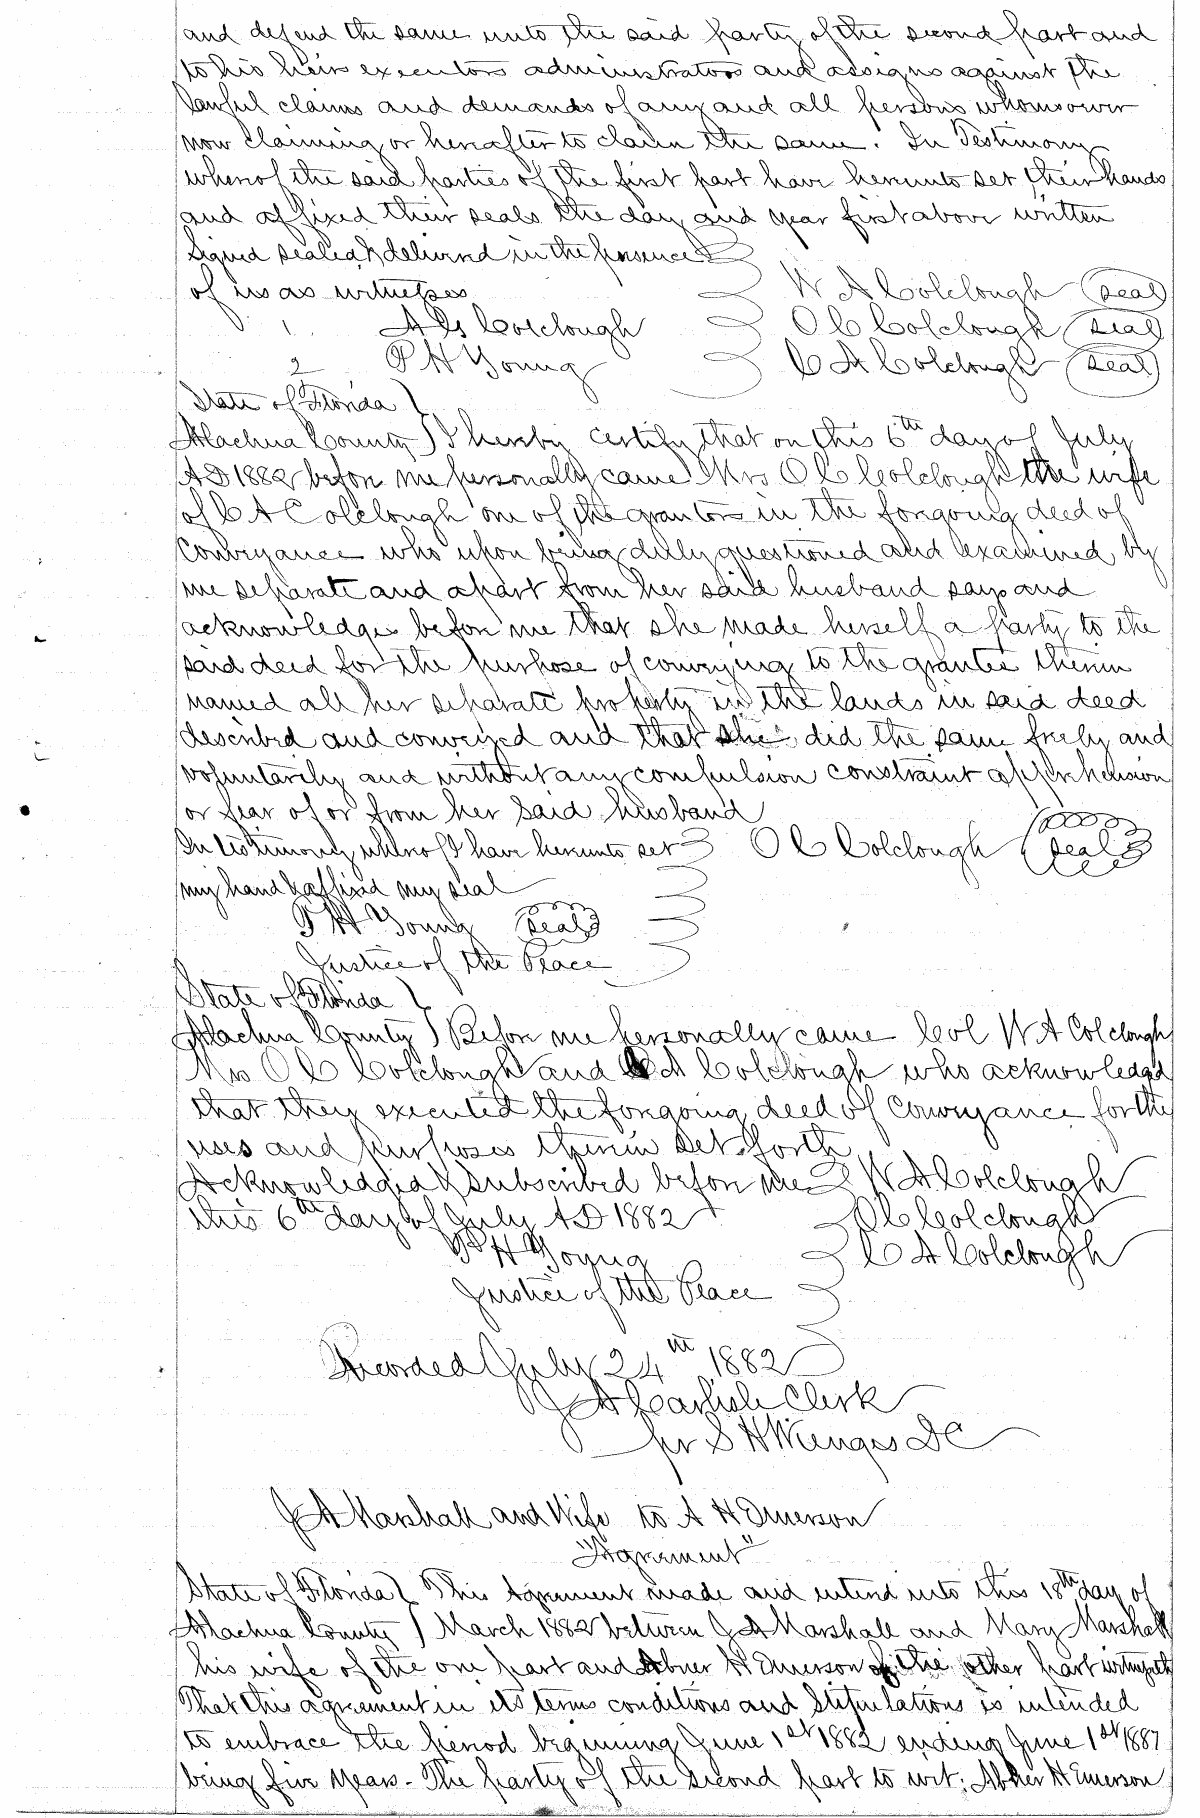 and defend the same unto the said party of the second part and
to his heirs executors administrators and assigns against the
lawful claims and demands of any and all persons whomsoever
now claiming or hereafter to claim the same. In Testimony
whereof the said parties of the first part have hereunto set their hands
and affixed their seals the day and year first above written
Signed sealed & delivered in the presence
of us as witnesses W A Colclough (seal)
1 A G Colclough O C Colclough (seal)
2 P H Young C A Colclough (seal)
State of Florida }
Alachua County ) I hereby certify that on this 6th day of July
AD 1882 before me personally came Mrs O C Colclough the wife
of C A Colclough one of the grantors in the forgoing deed of
Conveyance who upon being duly questioned and examined by
me separate and apart from her said husband says and
acknowledges before me that she made herself a party to the
said deed for the purpose of conveying to the grantee therein
named all her separate property in the lands in said deed
described and conveyed and that she did the same freely and
voluntarily and without any compulsion constraint apprehension
or fear of or from her said husband
In testimony whereof I have hereunto set O C Colclough (seal)
my hand & affixed my seal
P H Young (seal)
Justice of the Peace
State of Florida }
Alachua County ) Before me personally came Col W A Colclough
Mrs O C Colclough and C A Colclough who acknowledged
that they executed the forgoing deed of Conveyance for the
uses and purposes therein set forth
Acknowledged & Subscribed before me W A Colclough
this 6th day of July AD 1882 O C Colclough
P H Young C A Colclough
Justice of the Peace
Recorded July 24th 1882
J A Carlisle Clerk
pr S H Wienges DC
J A Marshall and Wife to A H Emerson
"Agrement"
State of Florida } This Agreement made and entered into this 18th day of
Alachua County ) March 1882 between J A Marshall and Mary Marshall
his wife of the one part and Abner H Emerson of the other part witnesseth
That this agreement in its terms conditions and Stipulations is intended
to embrace the period beginning June 1st 1882 ending June 1st 1887
being five years - The party of the second part to wit; Abner H Emerson